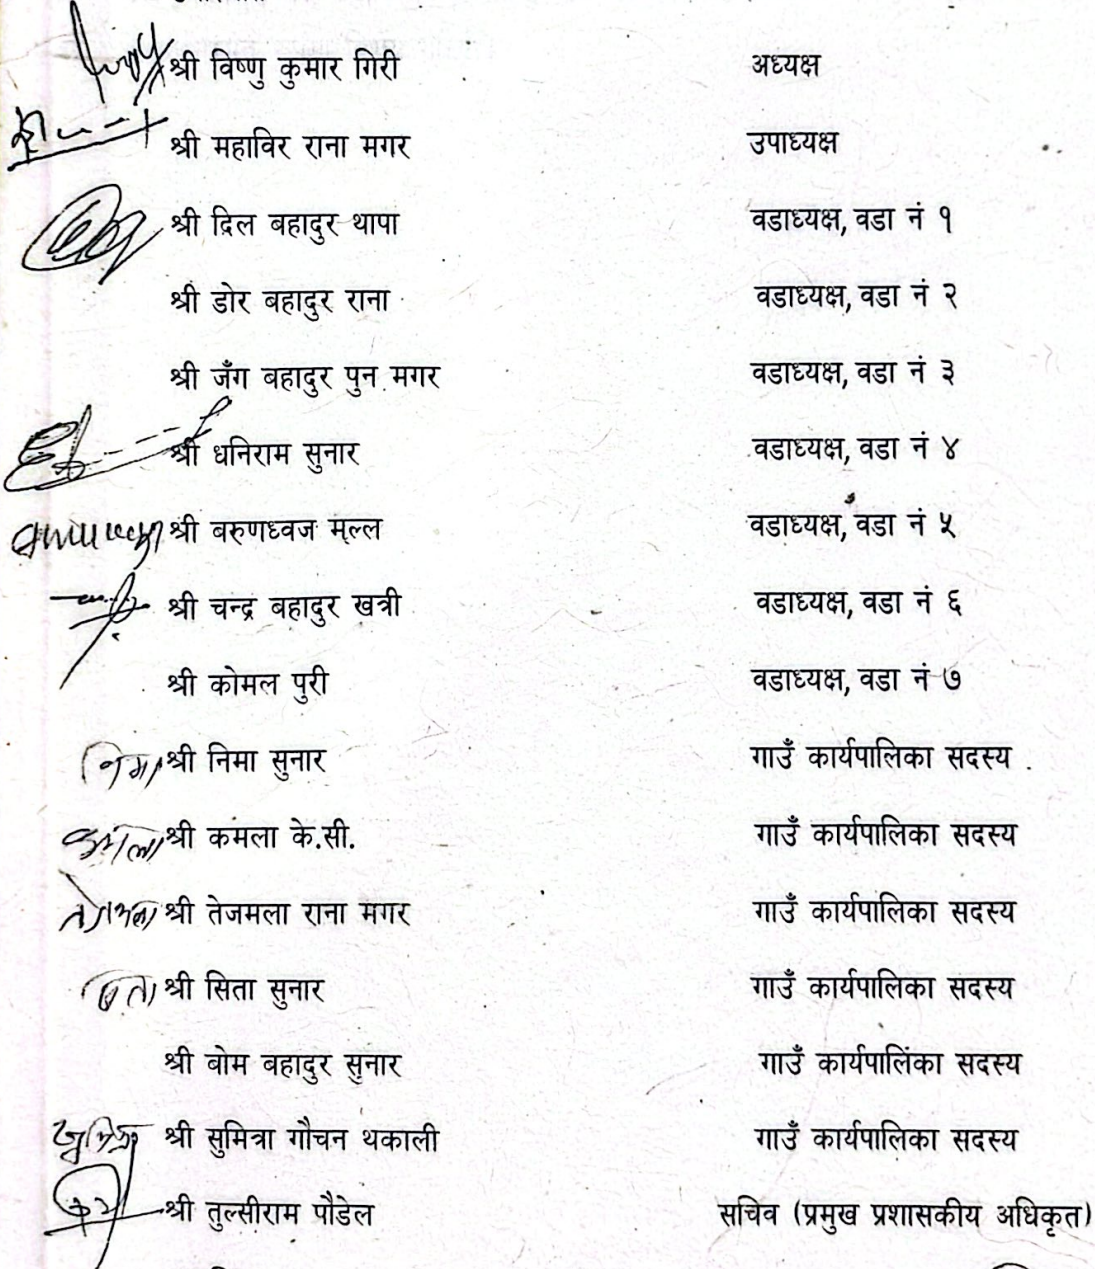 श्री विष्णु कुमार गिरी अध्यक्ष
श्री महाविर राना मगर उपाध्यक्ष
श्री दिल बहादुर थापा वडाध्यक्ष, वडा नं १
श्री डोर बहादुर राना वडाध्यक्ष, वडा नं २
श्री जँग बहादुर पुन मगर वडाध्यक्ष, वडा नं ३
श्री धनिराम सुनार वडाध्यक्ष, वडा नं ४
श्री बरुणध्वज मल्ल वडाध्यक्ष, वडा नं ५
श्री चन्द्र बहादुर खत्री वडाध्यक्ष, वडा नं ६
श्री कोमल पुरी वडाध्यक्ष, वडा नं ७
निमा श्री निमा सुनार गाउँ कार्यपालिका सदस्य
कमला श्री कमला के.सी. गाउँ कार्यपालिका सदस्य
श्री तेजमला राना मगर गाउँ कार्यपालिका सदस्य
श्री सिता सुनार गाउँ कार्यपालिका सदस्य
श्री बोम बहादुर सुनार गाउँ कार्यपालिका सदस्य
श्री सुमित्रा गौचन थकाली गाउँ कार्यपालिका सदस्य
श्री तुल्सीराम पौडेल सचिव (प्रमुख प्रशासकीय अधिकृत)